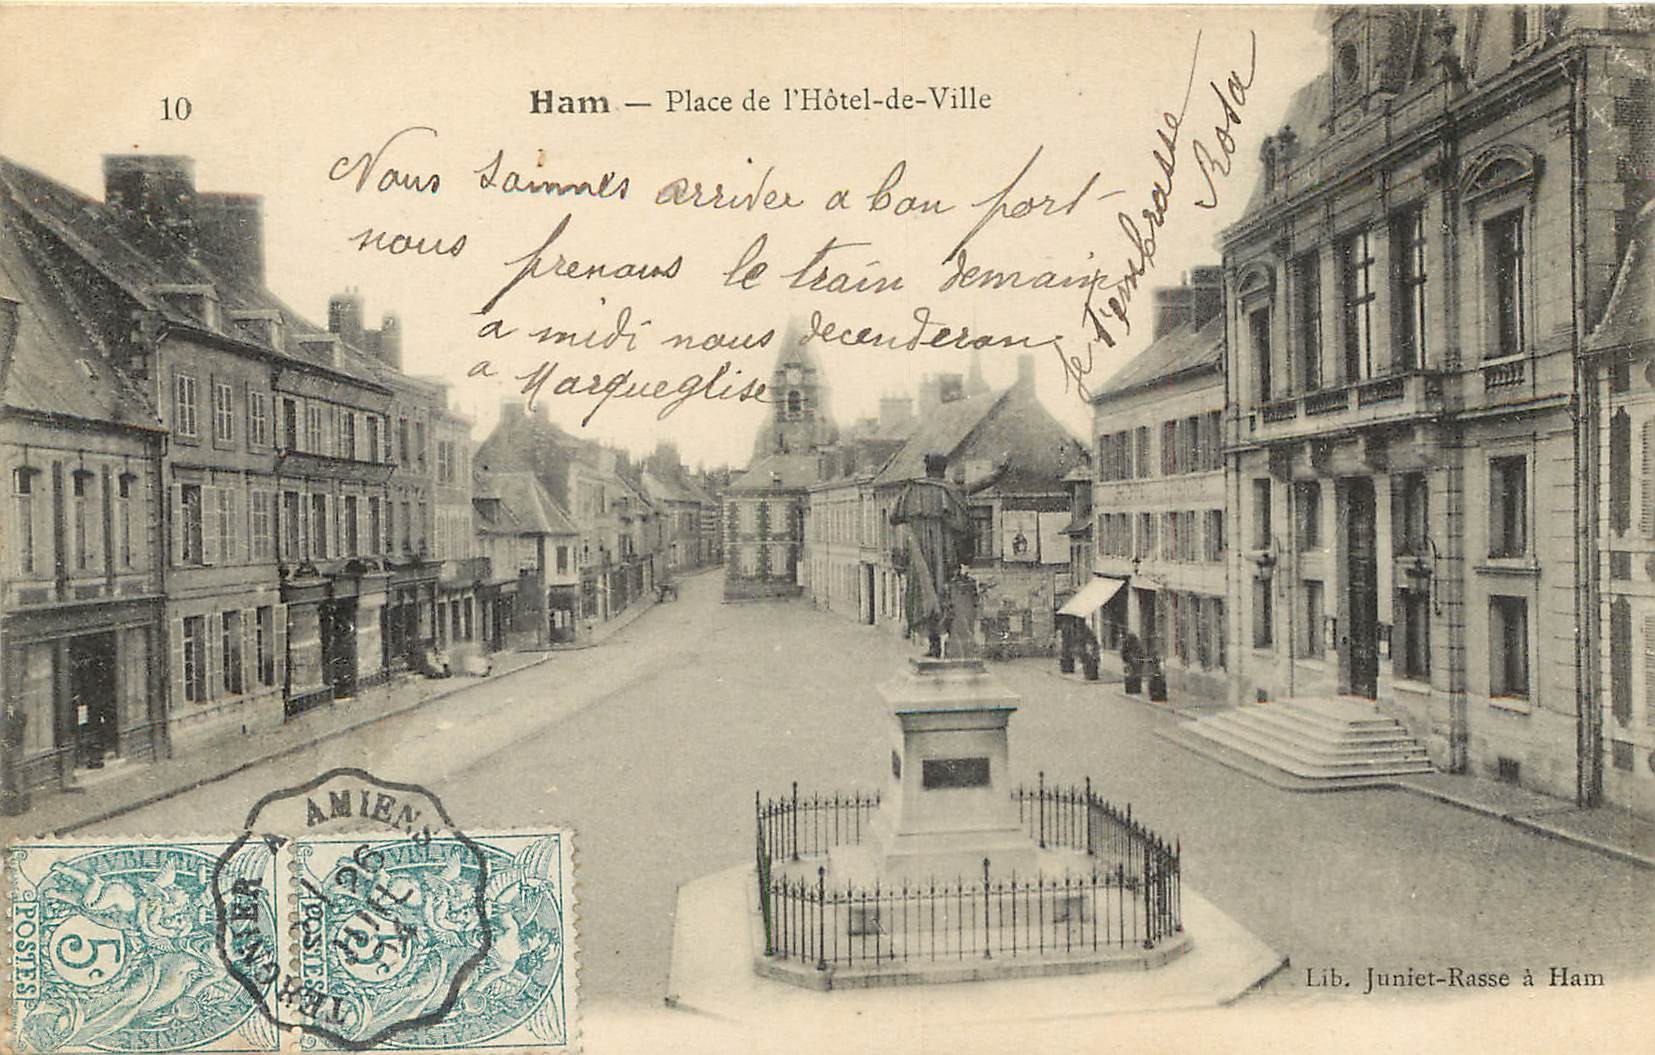 10
Ham — Place de l'Hôtel-de-Ville
Nous sommes arrivée a bon port
nous prenons le train demain
a midi nous decenderons
a Marqueglise
Je t'embrasse
Rosa
TERGNIER A AMIENS
5c
POSTES
5c
POSTES
Lib. Juniet-Rasse à Ham